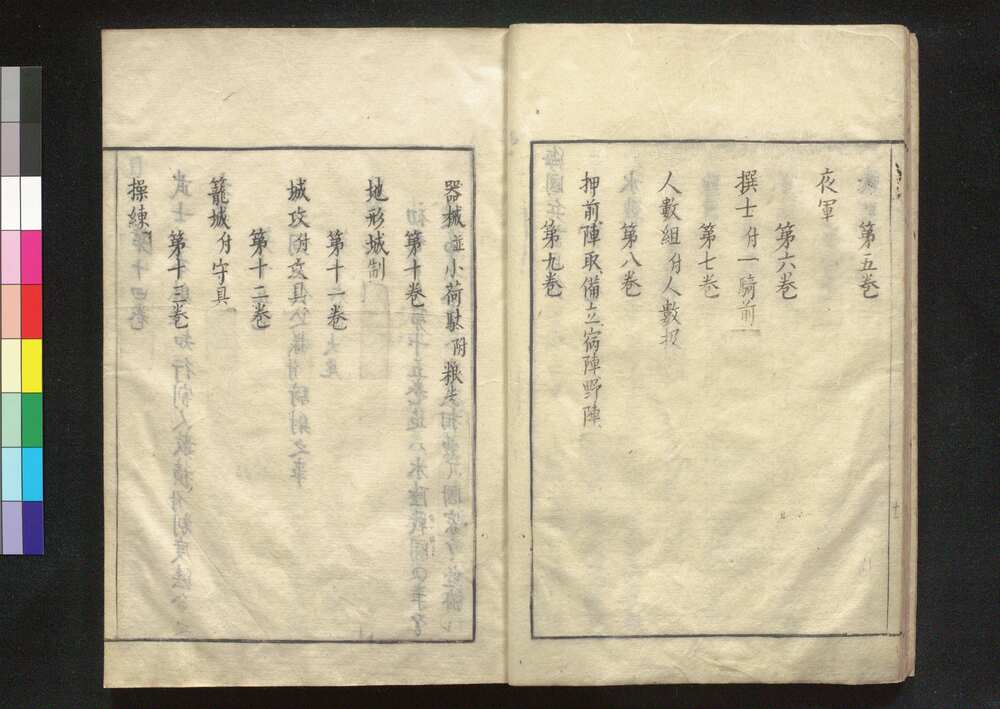 第五巻
夜軍
第六巻
撰士付一騎前
第七巻
人數組付人數扱
第八巻
押前陣取備立宿陣野陣
第九巻
器械並小荷駄附粮米
第十巻
地形城制
第十一巻
城攻付攻具
第十二巻
籠城付守具
第十三巻
操練